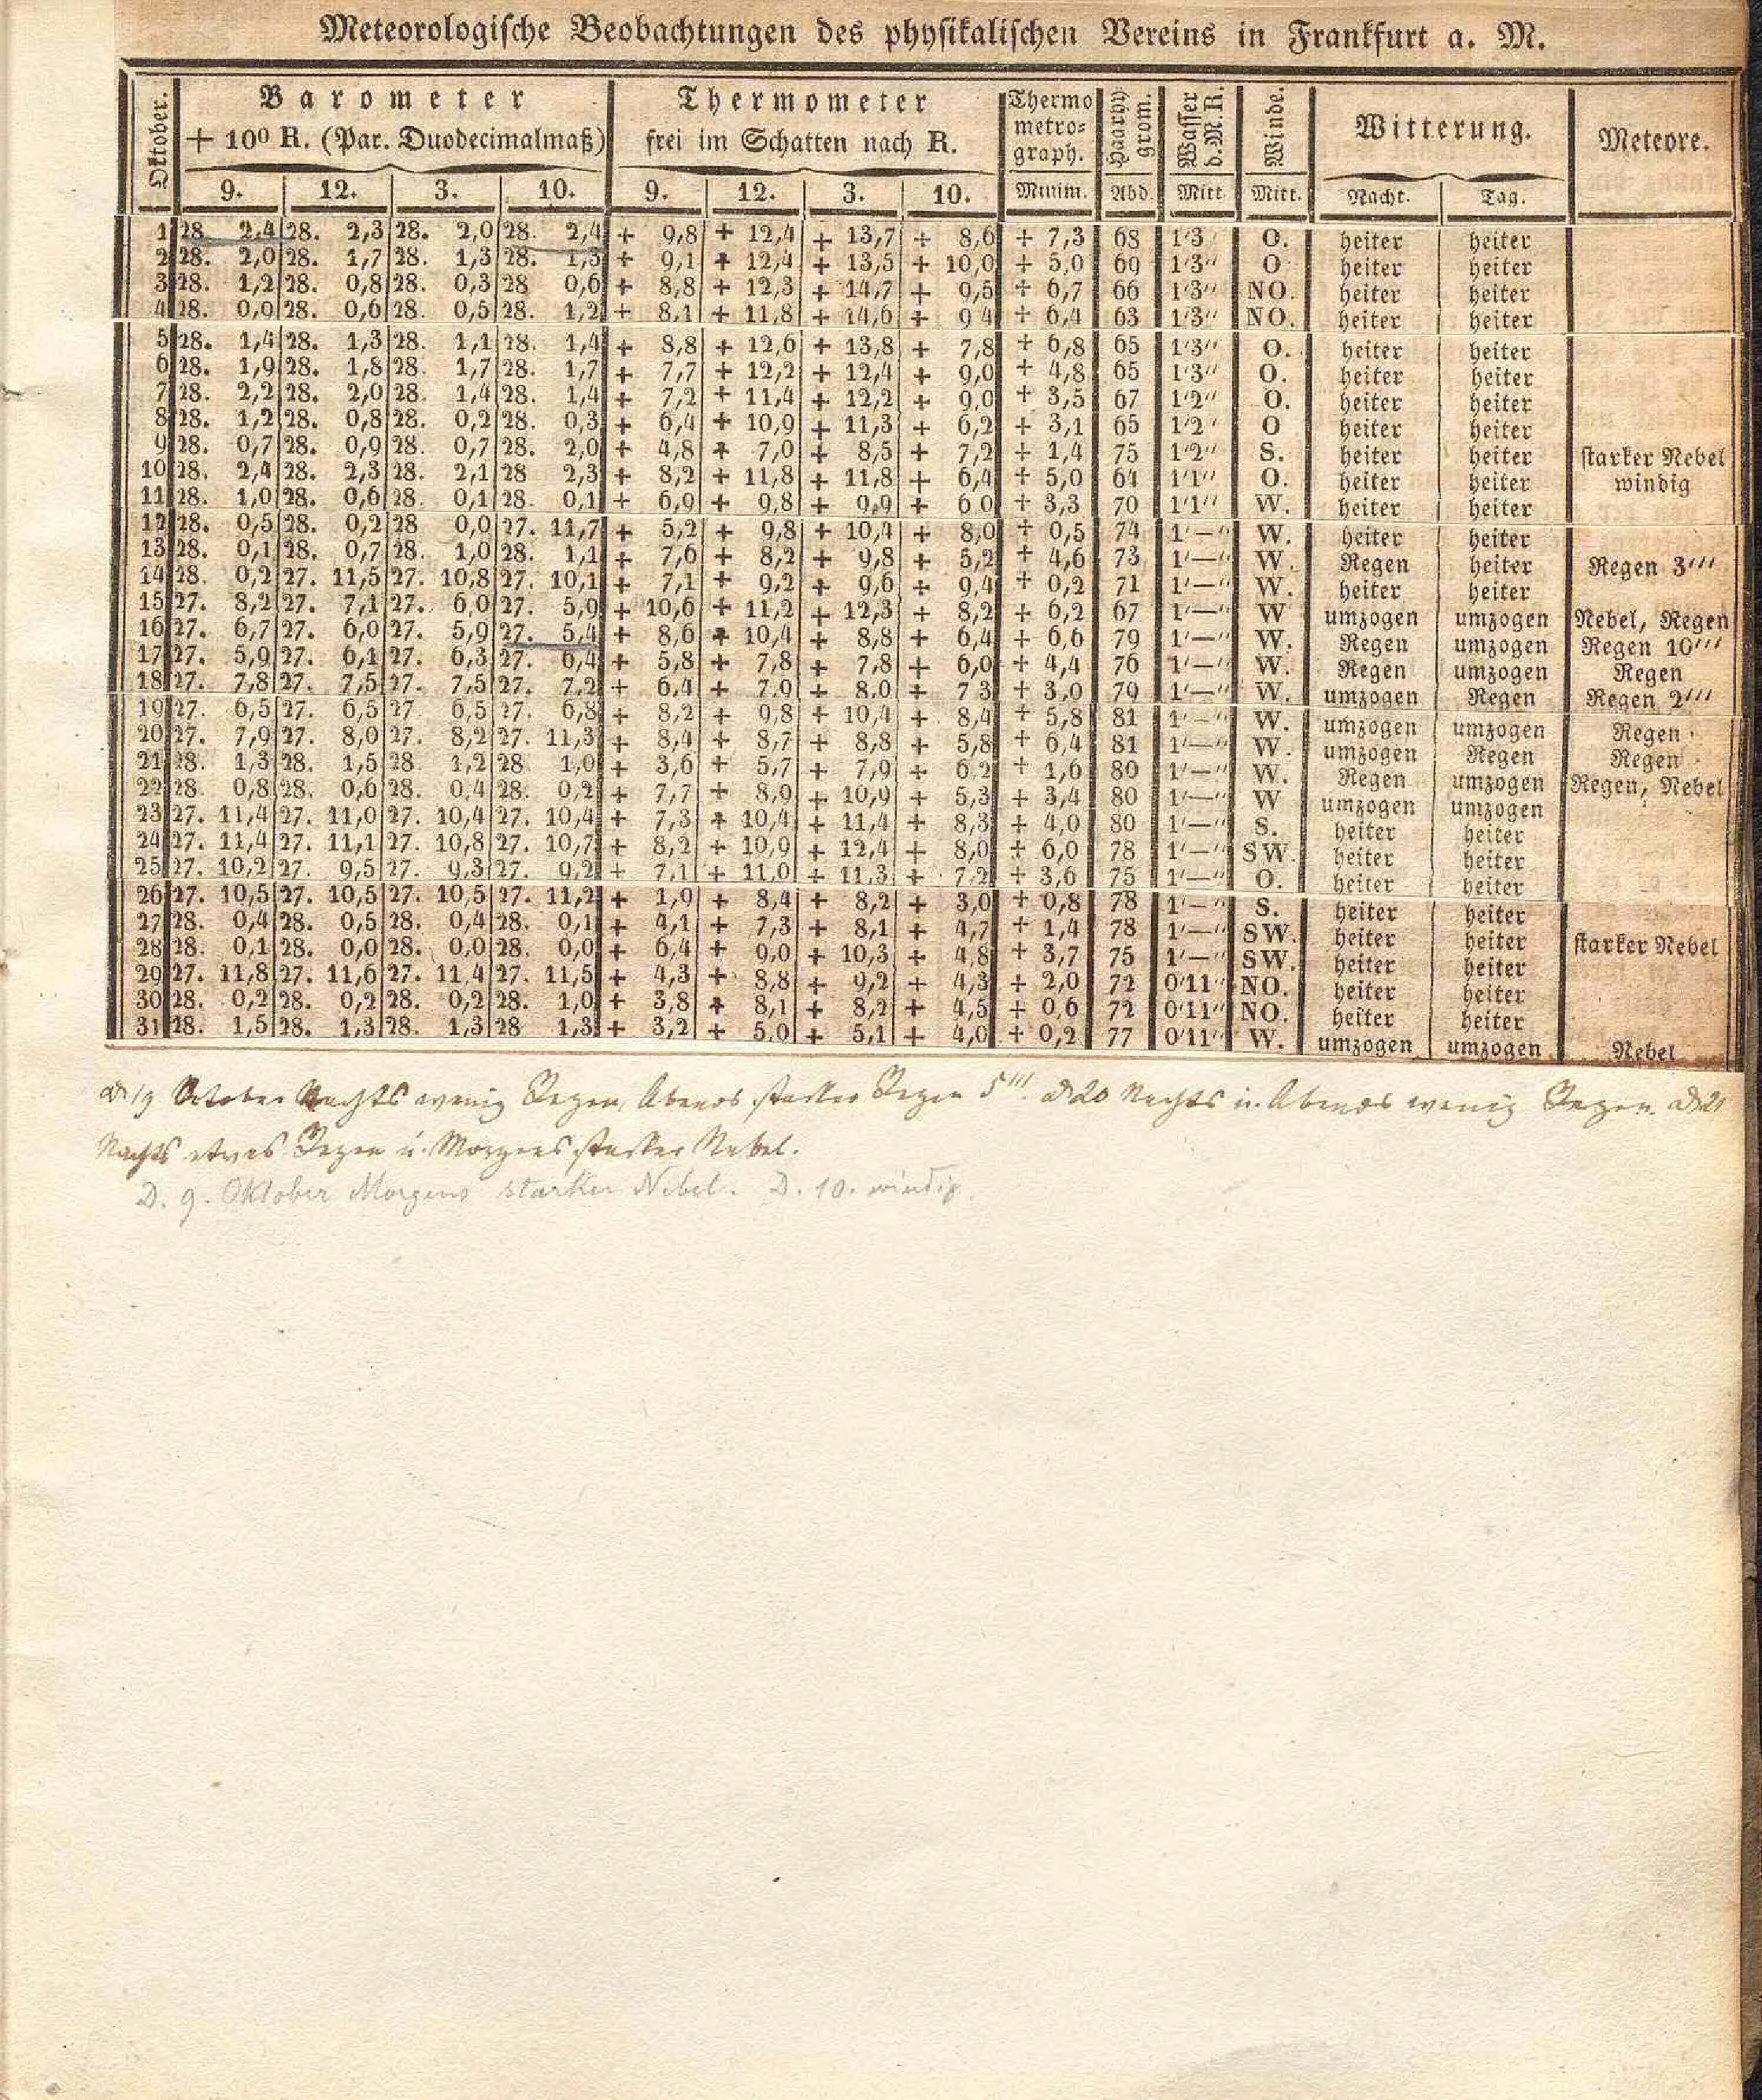 Meteorologische Beobachtungen des physikalischen Vereins in Frankfurt a. M.
Oktober. Barometer Thermometer Thermo Haarhy Wasser Winde. Witterung. Meteore.
+ 10⁰ R. (Par. Duodecimalmaß) frei im Schatten nach R. metro- graph. grom. d. M. R.
9. 12. 3. 10. 9. 12. 3. 10. Minim. Abd. Mitt. Mitt. Nacht. Tag.
1 28. 2,4 28. 2,3 28. 2,0 28. 2,4 + 9,8 + 12,4 + 13,7 + 8,6 + 7,3 68 1'3 O. heiter heiter
2 28. 2,0 28. 1,7 28. 1,3 28. 1,3 + 9,1 + 12,4 + 13,5 + 10,0 + 5,0 69 1'3" O heiter heiter
3 28. 1,2 28. 0,8 28. 0,3 28 0,6 + 8,8 + 12,3 + 14,7 + 9,5 + 6,7 66 1'3" NO. heiter heiter
4 28. 0,0 28. 0,6 28. 0,5 28. 1,2 + 8,1 + 11,8 + 14,6 + 9 4 + 6,4 63 1'3" NO. heiter heiter
5 28. 1,4 28. 1,3 28. 1,1 28. 1,4 + 8,8 + 12,6 + 13,8 + 7,8 + 6,8 65 1'3" O. heiter heiter
6 28. 1,9 28. 1,8 28. 1,7 28. 1,7 + 7,7 + 12,2 + 12,4 + 9,0 + 4,8 65 1'3" O. heiter heiter
7 28. 2,2 28. 2,0 28. 1,4 28. 1,4 + 7,2 + 11,4 + 12,2 + 9,0 + 3,5 67 1'2" O. heiter heiter
8 28. 1,2 28. 0,8 28. 0,2 28. 0,3 + 6,4 + 10,9 + 11,3 + 6,2 + 3,1 65 1'2" O heiter heiter
9 28. 0,7 28. 0,9 28. 0,7 28. 2,0 + 4,8 + 7,0 + 8,5 + 7,2 + 1,4 75 1'2" S. heiter heiter starker Nebel
10 28. 2,4 28. 2,3 28. 2,1 28 2,3 + 8,2 + 11,8 + 11,8 + 6,4 + 5,0 64 1'1" O. heiter heiter windig
11 28. 1,0 28. 0,6 28. 0,1 28. 0,1 + 6,9 + 9,8 + 9,9 + 6 0 + 3,3 70 1'1" W. heiter heiter
12 28. 0,5 28. 0,2 28 0,0 27. 11,7 + 5,2 + 9,8 + 10,4 + 8,0 + 0,5 74 1'—" W. heiter heiter
13 28. 0,1 28. 0,7 28. 1,0 28. 1,1 + 7,6 + 8,2 + 9,8 + 5,2 + 4,6 73 1'—" W. Regen heiter Regen 3'''
14 28. 0,2 27. 11,5 27. 10,8 27. 10,1 + 7,1 + 9,2 + 9,6 + 9,4 + 0,2 71 1'—" W. heiter heiter
15 27. 8,2 27. 7,1 27. 6,0 27. 5,9 + 10,6 + 11,2 + 12,3 + 8,2 + 6,2 67 1'—" W umzogen umzogen Nebel, Regen
16 27. 6,7 27. 6,0 27. 5,9 27. 5,4 + 8,6 + 10,4 + 8,8 + 6,4 + 6,6 79 1'—" W. Regen umzogen Regen 10'''
17 27. 5,9 27. 6,1 27. 6,3 27. 6,4 + 5,8 + 7,8 + 7,8 + 6,0 + 4,4 76 1'—" W. Regen umzogen Regen
18 27. 7,8 27. 7,5 27. 7,5 27. 7,2 + 6,4 + 7,9 + 8,0 + 7 3 + 3,0 79 1'—" W. umzogen Regen Regen 2'''
19 27. 6,5 27. 6,5 27 6,5 27. 6,8 + 8,2 + 9,8 + 10,4 + 8,4 + 5,8 81 1'—" W. umzogen umzogen Regen
20 27. 7,9 27. 8,0 27. 8,2 27. 11,3 + 8,4 + 8,7 + 8,8 + 5,8 + 6,4 81 1'—" W. umzogen Regen Regen
21 28. 1,3 28. 1,5 28. 1,2 28 1,0 + 3,6 + 5,7 + 7,9 + 6 2 + 1,6 80 1'—" W. Regen umzogen Regen, Nebel
22 28. 0,8 28. 0,6 28. 0,4 28. 0,2 + 7,7 + 8,9 + 10,9 + 5,3 + 3,4 80 1'—" W umzogen umzogen
23 27. 11,4 27. 11,0 27. 10,4 27. 10,4 + 7,3 + 10,4 + 11,4 + 8,3 + 4,0 80 1'—" S. heiter heiter
24 27. 11,4 27. 11,1 27. 10,8 27. 10,7 + 8,2 + 10,9 + 12,4 + 8,0 + 6,0 78 1'—" SW. heiter heiter
25 27. 10,2 27. 9,5 27. 9,3 27. 9,2 + 7,1 + 11,0 + 11,3 + 7,2 + 3,6 75 1'—" O. heiter heiter
26 27. 10,5 27. 10,5 27. 10,5 27. 11,2 + 1,9 + 8,4 + 8,2 + 3,0 + 0,8 78 1'—" S. heiter heiter
27 28. 0,4 28. 0,5 28. 0,4 28. 0,1 + 4,1 + 7,3 + 8,1 + 4,7 + 1,4 78 1'—" SW. heiter heiter starker Nebel
28 28. 0,1 28. 0,0 28. 0,0 28. 0,0 + 6,4 + 9,0 + 10,3 + 4,8 + 3,7 75 1'—" SW. heiter heiter
29 27. 11,8 27. 11,6 27. 11,4 27. 11,5 + 4,3 + 8,8 + 9,2 + 4,3 + 2,0 72 0'11" NO. heiter heiter
30 28. 0,2 28. 0,2 28. 0,2 28. 1,0 + 3,8 + 8,1 + 8,2 + 4,5 + 0,6 72 0'11" NO. heiter heiter
31 28. 1,5 28. 1,3 28. 1,3 28 1,3 + 3,2 + 5,0 + 5,1 + 4,0 + 0,2 77 0'11" W. umzogen umzogen Nebel
19 October Nachts wenig Regen, Abends starker Regen 5'''. d 20 Nachts u. Abends wenig Regen. d 21
Nachts etwas Regen u. Morgens starker Nebel.
D. 9. Oktober Morgens starker Nebel. D. 10. windig.